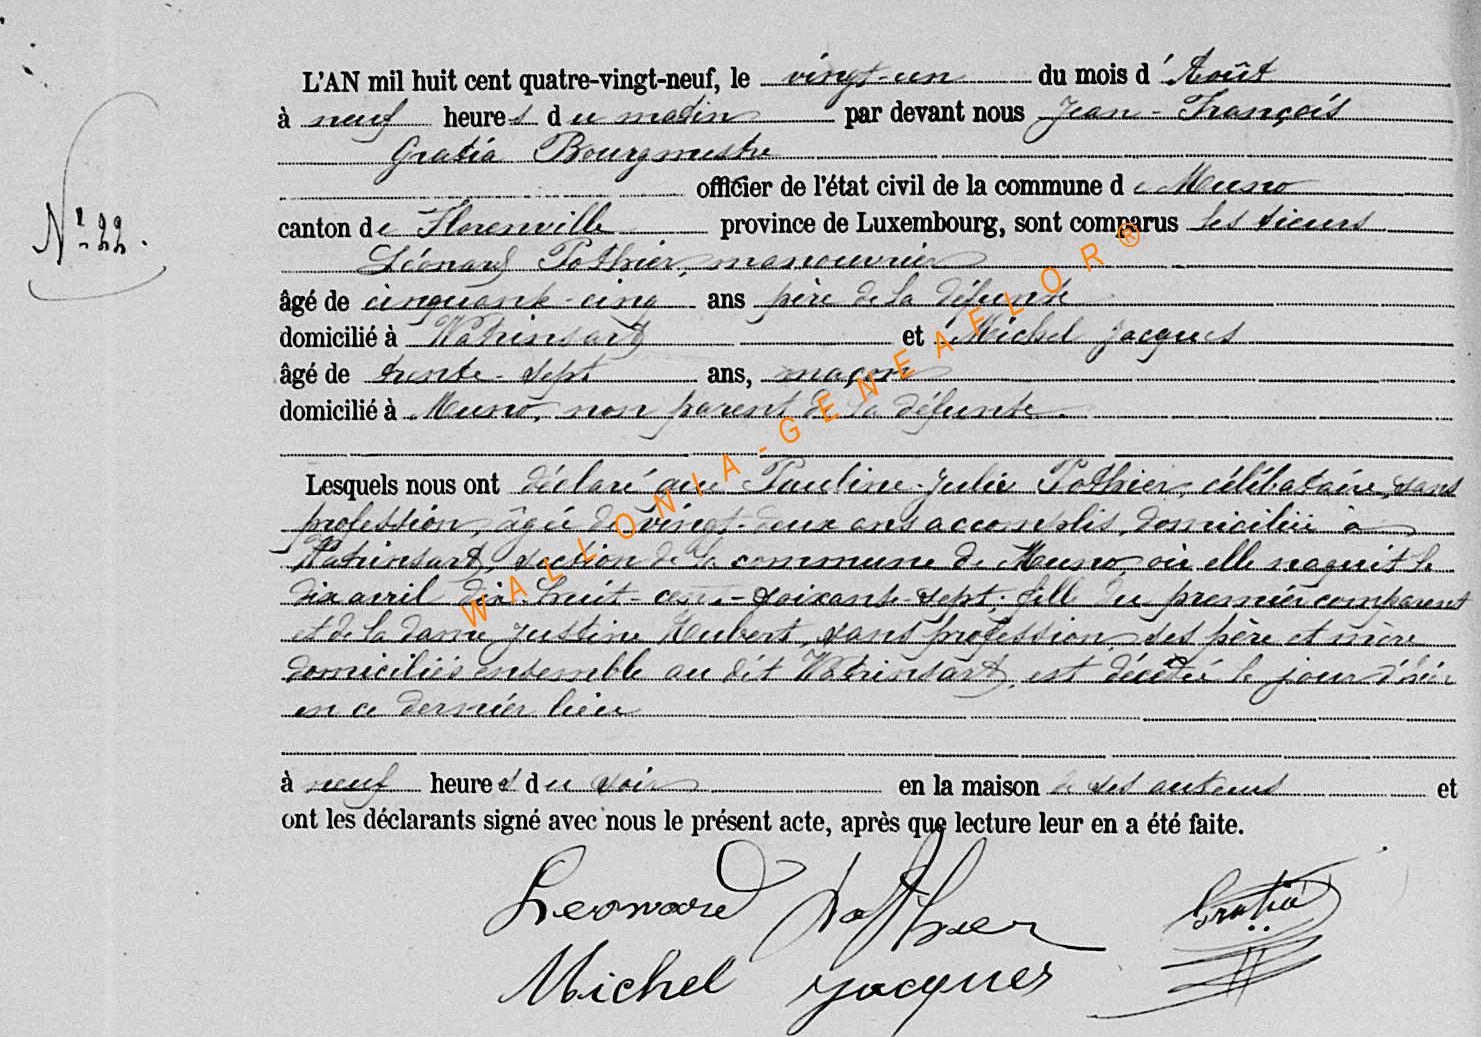 L'AN mil huit cent quatre-vingt-neuf, le vingt-un du mois d'Août
à neuf heures du matin par devant nous Jean-François
Gratia Bourgmestre
officier de l'état civil de la commune de Muno
N° 22.
canton de Florenville province de Luxembourg, sont comparus les sieurs
Léonard Pothier, manouvrier
âgé de cinquante-cinq ans père de la défunte
domicilié à Watrinsart et Michel Jacques
âgé de trente-sept ans, maçon
domicilié à Muno, non parent de la défunte.
Lesquels nous ont déclaré que Pauline-Julie Pothier, célibataire, sans
profession, âgée de vingt-deux ans accomplis, domiciliée à
Watrinsart, section de la commune de Muno, où elle naquit le
dix avril dix-huit-cent-soixante-sept, fille du premier comparent
et de la dame Justine Hubert, sans profession, ses père et mère
domiciliés ensemble au dit Watrinsart, est décédée le jour d'hier
en ce dernier lieu
à neuf heures du soir en la maison de ses auteurs et
ont les déclarants signé avec nous le présent acte, après que lecture leur en a été faite.
Leonard Pothier Gratia
Michel Jacques
WALLONIA-GENEAFLOR®